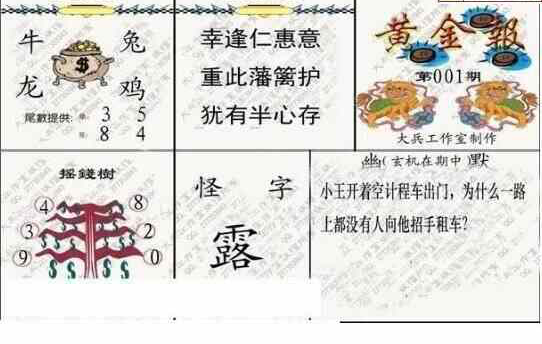 牛 兔
龙 鸡
尾數提供: 單: 3 5
雙: 8 4
幸逢仁惠意
重此藩篱护
犹有半心存
黄金報
第001期
大兵工作室制作
摇錢樹
4 8
3 2
9 0
怪 字
露
幽(玄机在期中)默
小王开着空计程车出门，为什么一路
上都没有人向他招手租车?